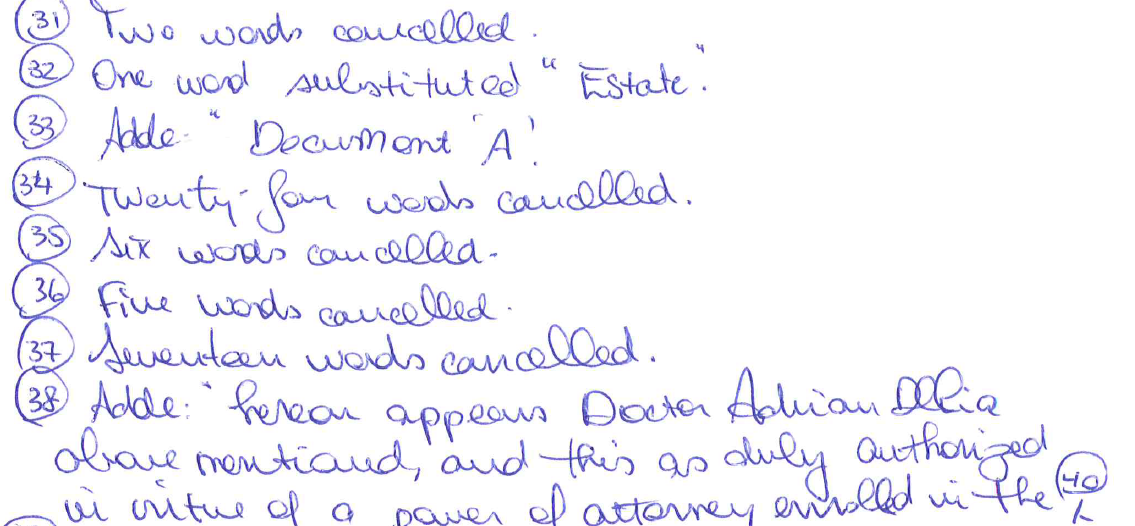 (31) Two words cancelled.
(32) One word substituted "Estate".
(33) Adde "Document 'A'.
(34) Twenty-four words cancelled.
(35) Six words cancelled.
(36) Five words cancelled.
(37) Seventeen words cancelled.
(38) Adde: "hereon appears Doctor Adrian Dellia
above mentioned, and this as duly authorized
in virtue of a power of attorney enrolled in the (40)